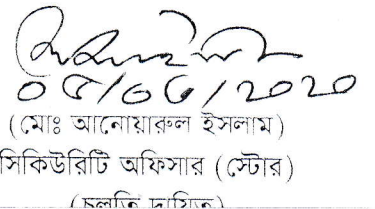 ০৫/০৬/২০২০
(মোঃ আনোয়ারুল ইসলাম)
সিকিউরিটি অফিসার (স্টোর)
(চলতি দায়িত্ব)